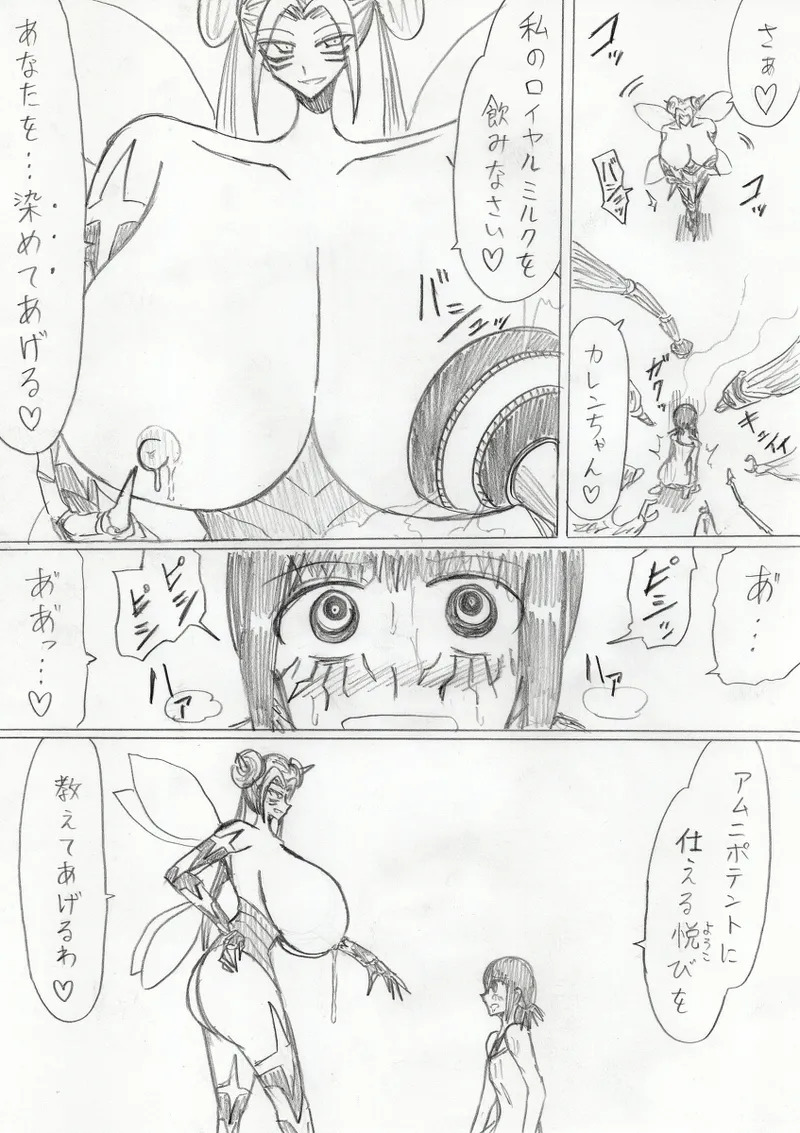 さぁ♡
コッ
コッ
バシュッ
カレンちゃん♡
ガクッ
キッイイ
私のロイヤルミルクを
飲みなさい♡
バシュッ
あなたを…染めてあげる♡
あ゛…
ピシッ
ハァ
ピシピシ
ハァ
あ゛あ゛っ…♡
アムニポテントに
仕える悦びを
ようこ
教えてあげるわ♡